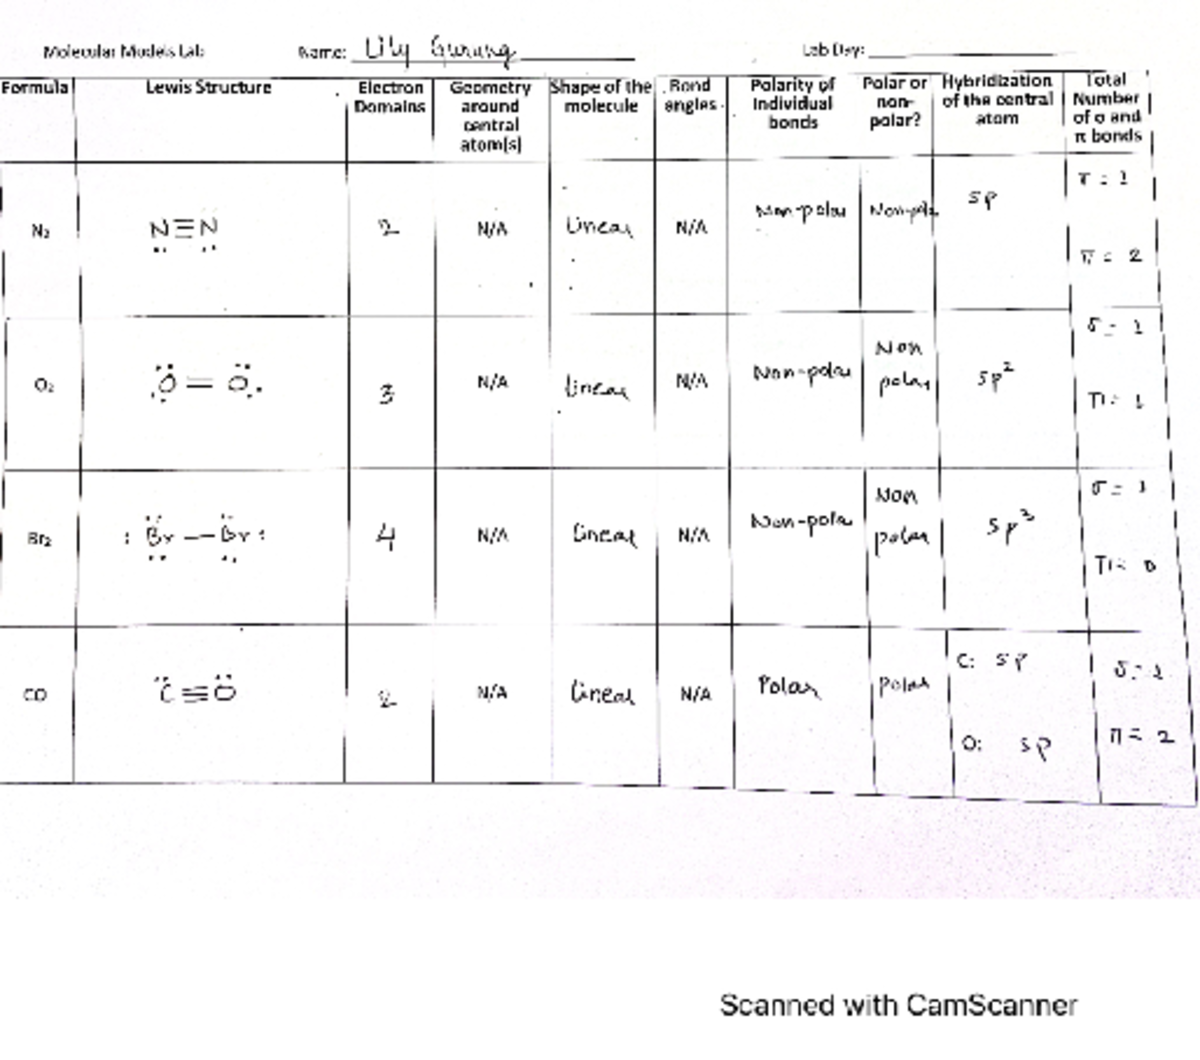 Molecular Models Lab: Name: Lily Gurung Lab Day:
Formula Lewis Structure Electron Domains Geometry around central atom(s) Shape of the molecule Bond angles Polarity of Individual bonds Polar or non-polar? Hybridization of the central atom Total Number of σ and π bonds
N₂ N≡N 2 N/A Linear N/A Non-polar Non-pola sp σ = 1
π = 2
O₂ O = O 3 N/A Linear N/A Non-polar Non polar sp² σ = 1
π = 1
Br₂ : Br — Br : 4 N/A Linear N/A Non-pola Non polar sp³ σ = 1
π = 0
CO C≡O 2 N/A Linear N/A Polar Polar C: sp σ = 1
O: sp π = 2
Scanned with CamScanner